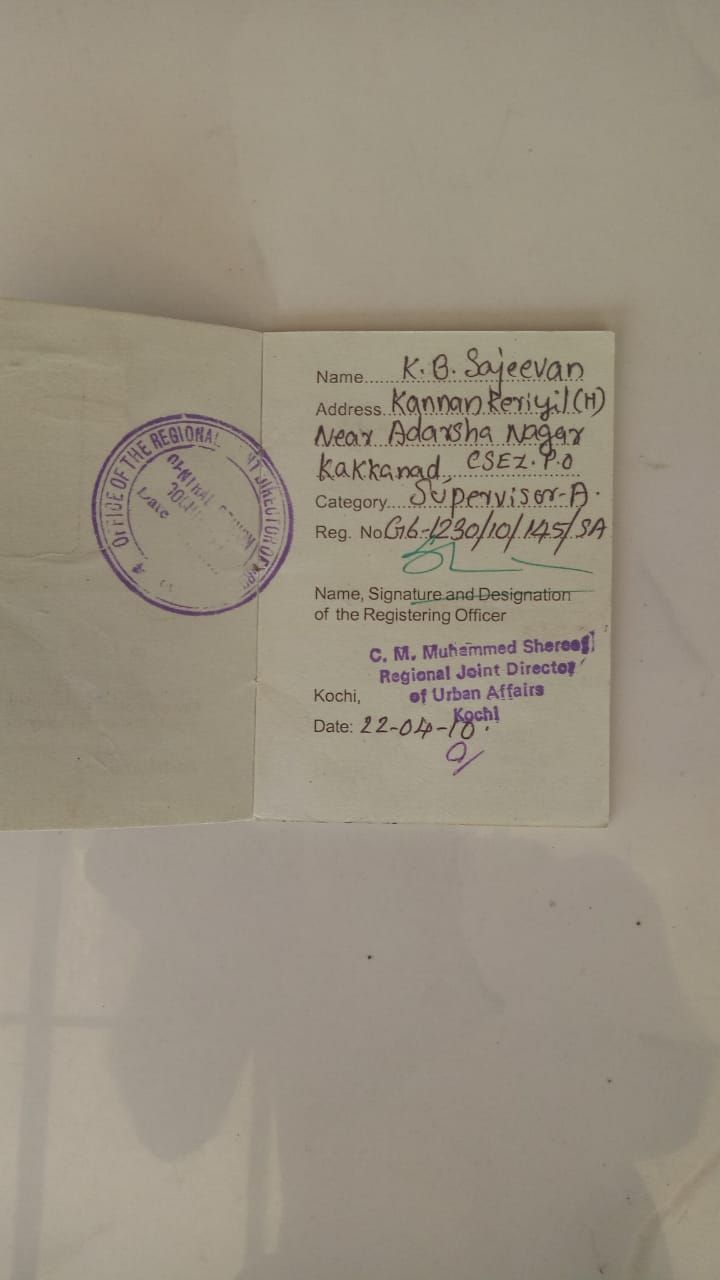 OFFICE OF THE REGIONAL
DIRECTOR OF
Date
Name...... K. B. Sajeevan
Address.. Kannankeriyil (H)
Near Adarsha Nagar
Kakkanad, CSEZ. P.O
Category.... Supervisor-A.
Reg. No. G6-1230/10/145/SA
Name, Signature and Designation
of the Registering Officer
C. M. Muhammed Shereef
Regional Joint Director
of Urban Affairs
Kochi
Kochi,
Date: 22-04-10.